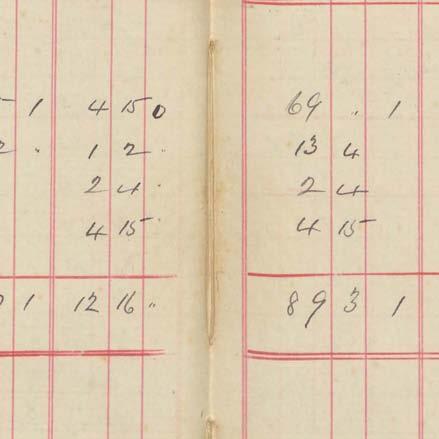 1 4 15 0
1 2
2 4
4 15
1 12 16 "
69 " 1
13 4
2 4
4 15
89 3 1